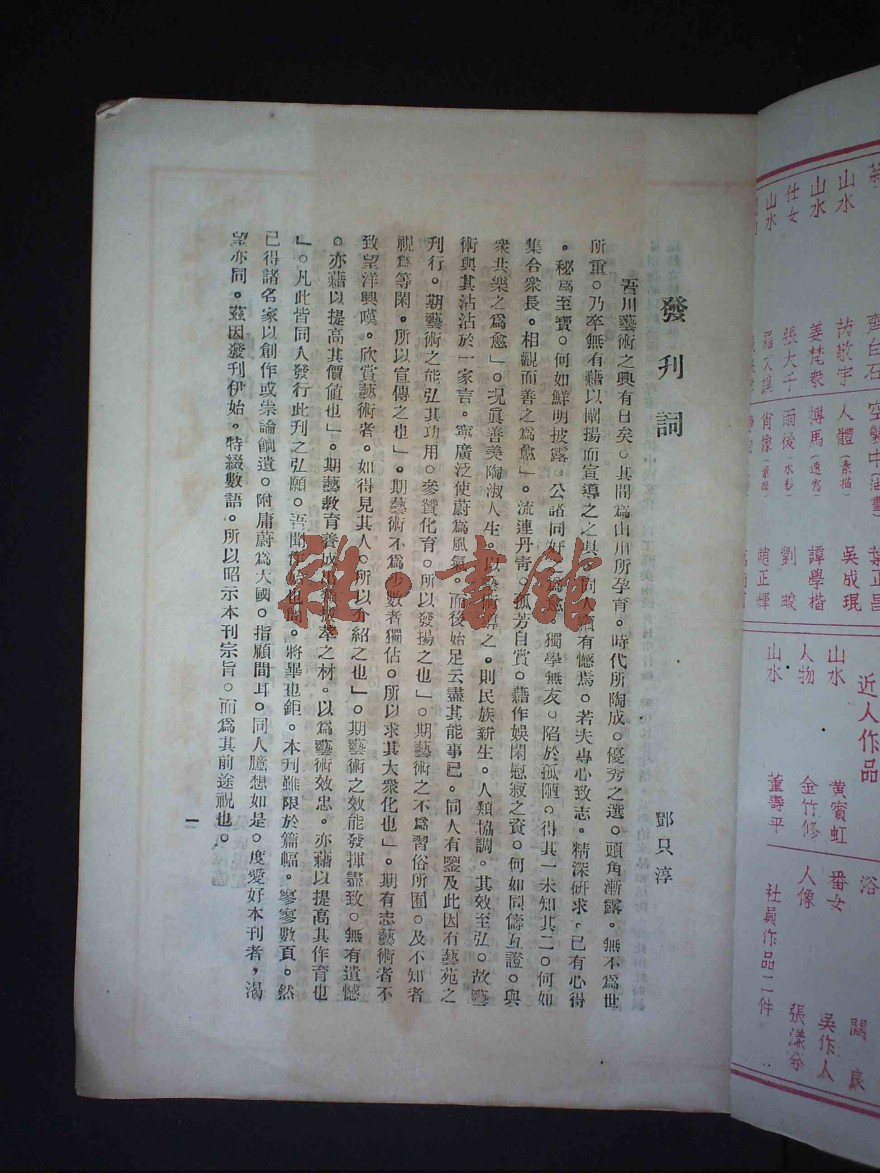 發刊詞
鄧只淳
吾川藝術之興有日矣。其間為山川所孕育。時代所陶成。優秀之選。頭角漸露。無不為世
所重。乃卒無有藉以闡揚而宣導之之具。同人竊有憾焉。若夫專心致志。精深研求。已有心得
。秘為至寶。何如鮮明披露。公諸同好之為愈。獨學無友。陷於孤陋。得其一未知其二。何如
集合衆長。相觀而善之為愈」。流連丹青。孤芳自賞。藉作娛閑慰寂之資。何如同儔互證。與
衆共樂之為愈」。况眞善美陶淑人生。以藝術導之。則民族新生。人類協調。其效至弘。故藝
術與其沾沾於一家言。寧廣泛使蔚為風氣。而後始足云盡其能事已。同人有鑒及此因有藝苑之
刊行。期藝術之能弘其功用。參贊化育。所以發揚之也」。期藝術之不為習俗所囿。及不知者
視為等閑。所以宣傳之也」。期藝術不為少數者獨佔。所以求其大衆化也」。期有志藝術者不
致望洋興嘆。欣賞藝術者。如得見其人。所以介紹之也」。期藝術之效能發揮盡致。無有遺憾
。亦藉以提高其價值也」。期藝教育養成出類拔萃之材。以為藝術效忠。亦藉以提高其作育也
」。凡此皆同人發行此刊之弘願。吾聞作始也簡。將畢也鉅。本刊雖限於篇幅。寥寥數頁。然
已得諸名家以創作或崇論餉遺。附庸蔚為大國。指顧間耳。同人臆想如是。度愛好本刊者，渴
望亦同。茲因發刊伊始。特綴數語。所以昭示本刊宗旨。而為其前途祝也。
一
雜·書館
山水
山水
仕女
山水
齊白石
芮敬宇
姜梵衆
張大千
空襲中(油畫)
人體(素描)
肖像
葉正昌
吳成琨
譚學楷
劉峻
趙正輝
近人作品
山水 黃賓虹
人物 金竹修
山水 董壽平
浴 關良
番女 吳作人
人像 張漾兮
社員作品二件